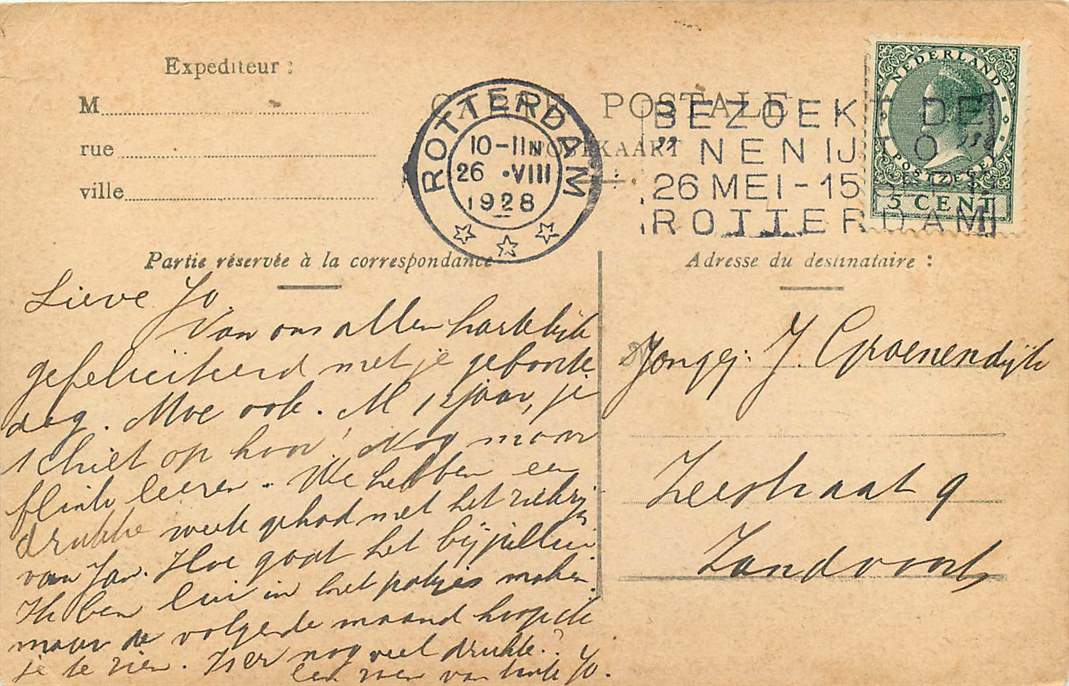 Expediteur :
M
rue
ville
CARTE POSTALE
POSTKAART
ROTTERDAM
10-11 N
26 .VIII
1928
BEZOEKT DE
"NENIJTO"
26 MEI-15 SEPT
ROTTERDAM
NEDERLAND
POSTZEGEL
5 CENT
Partie réservée à la correspondance
Adresse du destinataire :
Lieve Jo.
Van ons allen hartelijk
gefeliciteerd met je geboorte
dag. Moe ook. Al 12 jaar, je
schiet op hoor! Nog maar
flink leeren. We hebben een
drukke week gehad met het
van Jan. Hoe gaat het
Ik ben lui in het potjes maken
maar de volgende maand hoop ik
je te zien. Hier nog veel drukte?
Een zoen van tante Jo.
Jongej: J. Groenendijk
Zeestraat 9
Zandvoort